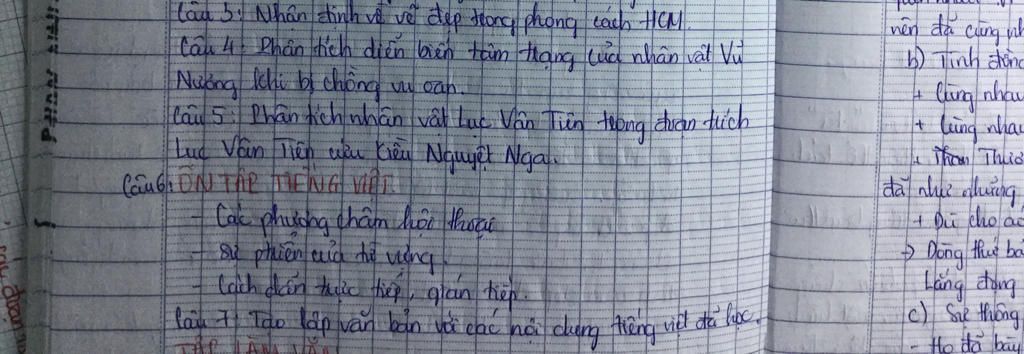 Câu 3: Nhận định về vẻ đẹp trong phong cách HCM.
Câu 4: Phân tích diễn biến tâm trạng của nhân vật Vũ
Nương khi bị chồng vu oan.
Câu 5: Phân tích nhân vật Lục Vân Tiên trong đoạn trích
Lục Vân Tiên cứu Kiều Nguyệt Nga.
Câu 6: ÔN TẬP TIẾNG VIỆT
- Các phương châm hội thoại
- Sự phát triển của từ vựng
- Cách dẫn trực tiếp, gián tiếp.
Câu 7: Tạo lập văn bản với các nội dung tiếng việt đã học.
TẬP LÀM VĂN
nên đã cùng
b) Tình
+ Cùng nhau
+ Cùng nhau
đã như những
+ Dù cho
Lắng đọng
c) Sự thông
- Họ đã bay